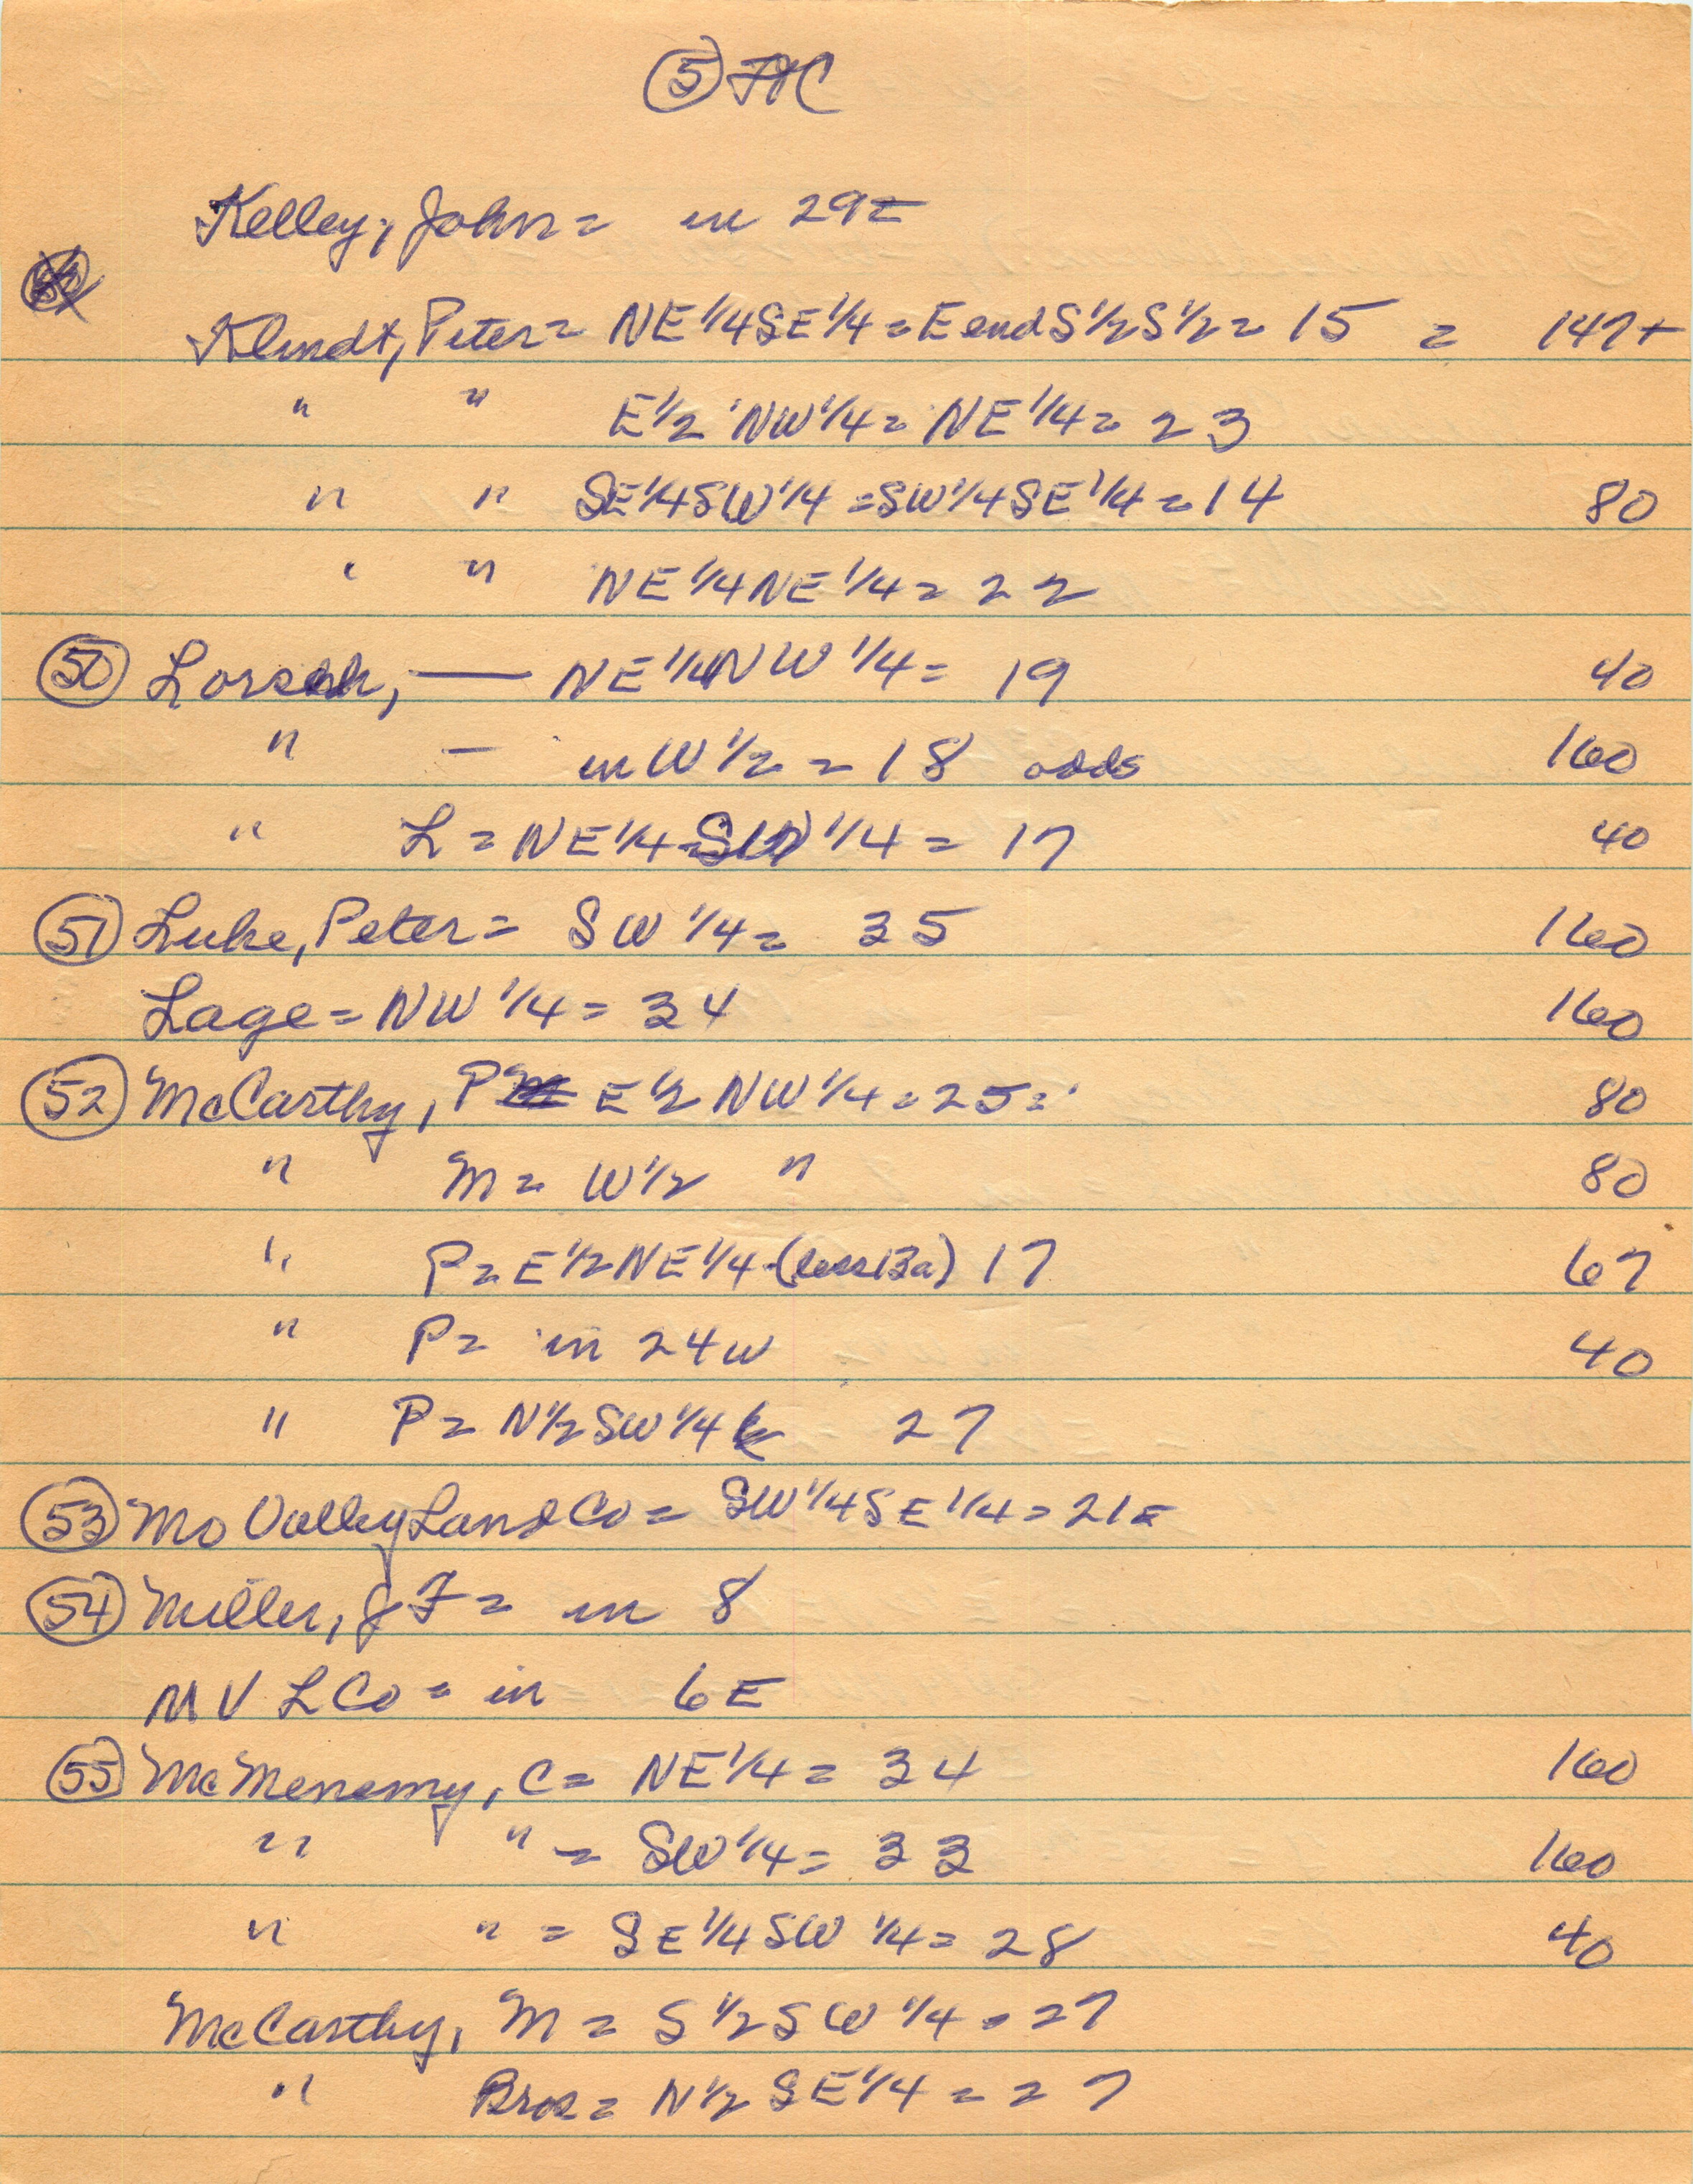 (5) JYC
Kelley, John = in 29E
Klindt, Peter = NE 1/4 SE 1/4 = E end S 1/2 S 1/2 = 15 = 147+
" " E 1/2 NW 1/4 = NE 1/4 = 23
" " SE 1/4 SW 1/4 = SW 1/4 SE 1/4 = 14 80
" " NE 1/4 NE 1/4 = 22
(50) Lorsch, — NE 1/4 NW 1/4 = 19 40
" – in W 1/2 = 18 odds 160
" L = NE 1/4 SW 1/4 = 17 40
(51) Luke, Peter = SW 1/4 = 35 160
Lage = NW 1/4 = 34 160
(52) McCarthy, P E 1/2 NW 1/4 = 25 = 80
" M = W 1/2 " 80
" P = E 1/2 NE 1/4 - (less 13a) 17 67
" P = in 24 W 40
" P = N 1/2 SW 1/4 27
(53) Mo Valley Land Co = SW 1/4 SE 1/4 = 21E
(54) Miller, J F = in 8
M V L Co = in 6E
(55) McMenemy, C = NE 1/4 = 34 160
" " = SW 1/4 = 33 160
" " = SE 1/4 SW 1/4 = 28 40
McCarthy, M = S 1/2 SW 1/4 = 27
" Bros = N 1/2 SE 1/4 = 27